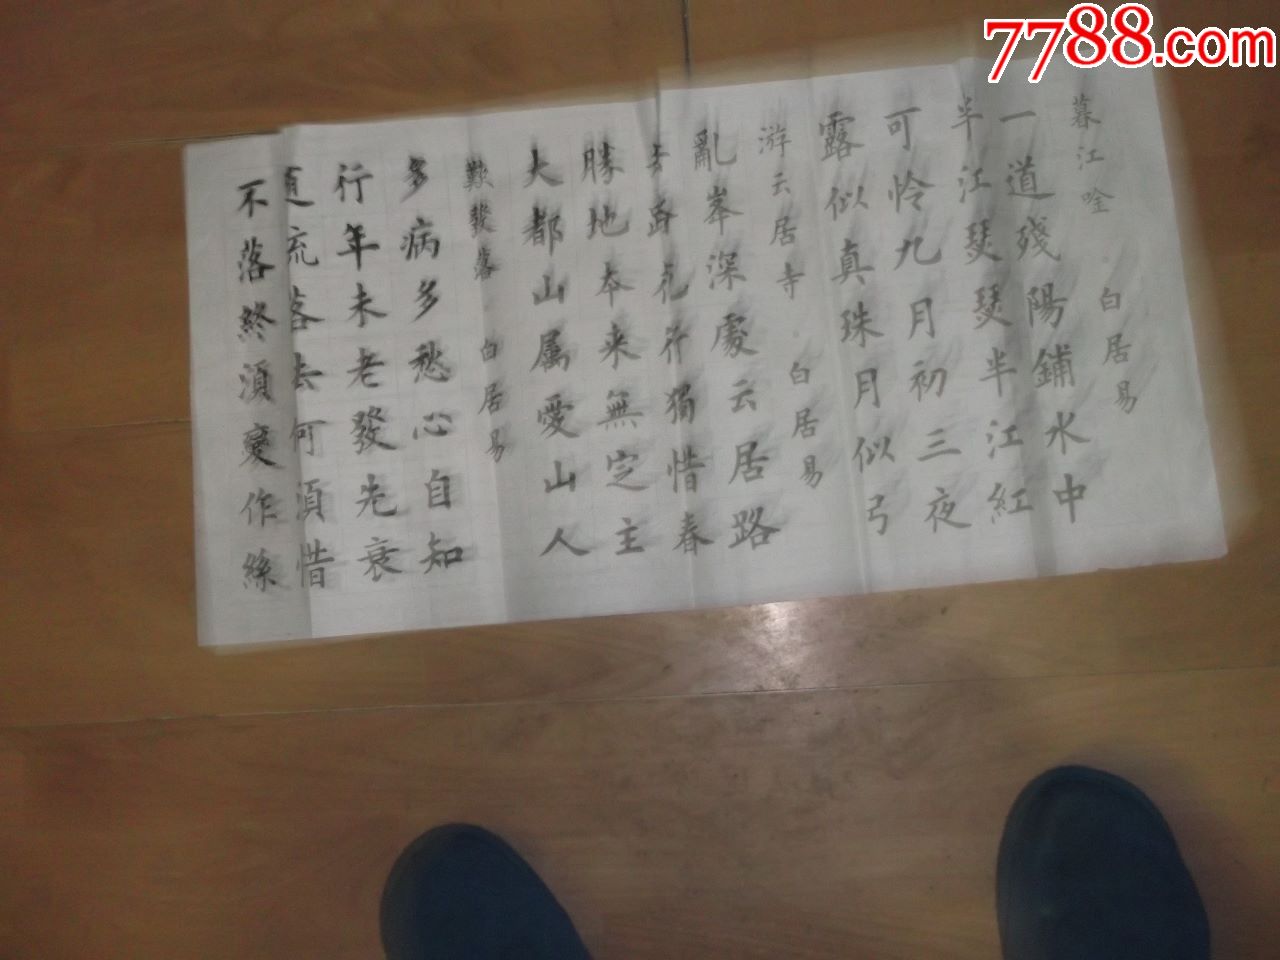 7788.com
暮江唫 · 白居易
一道殘陽鋪水中
半江瑟瑟半江紅
可怜九月初三夜
露似真珠月似弓
游云居寺 · 白居易
亂峯深處云居路
花行獨惜春
勝地本来無定主
大都山属愛山人
歎發落 白居易
多病多愁心自知
行年未老發先衰
落去何須惜
不落終須變作絲